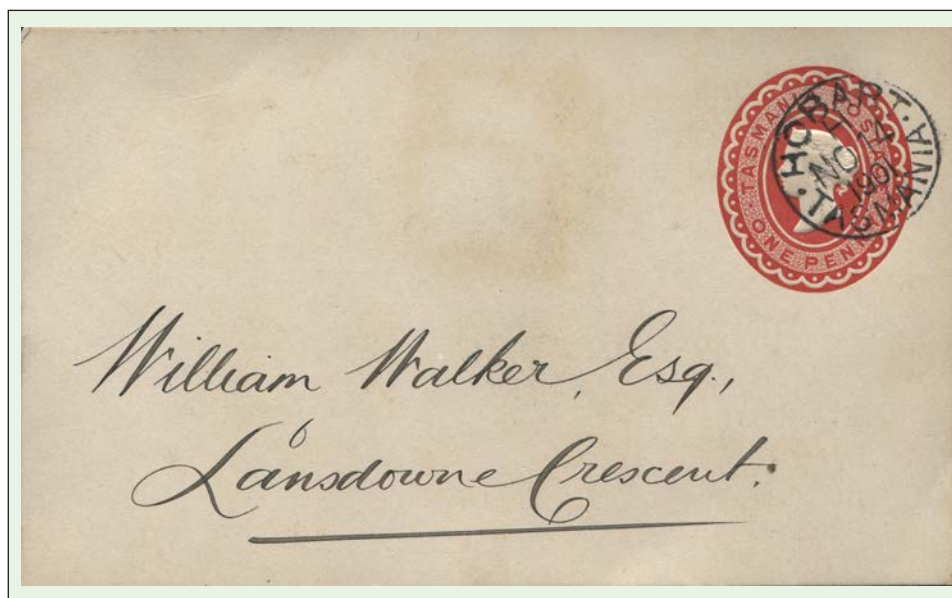 TASMANIA POSTAGE
ONE PENNY
HOBART.
NO 14
1901
TASMANIA
William Walker, Esq.,
Lansdowne Crescent.